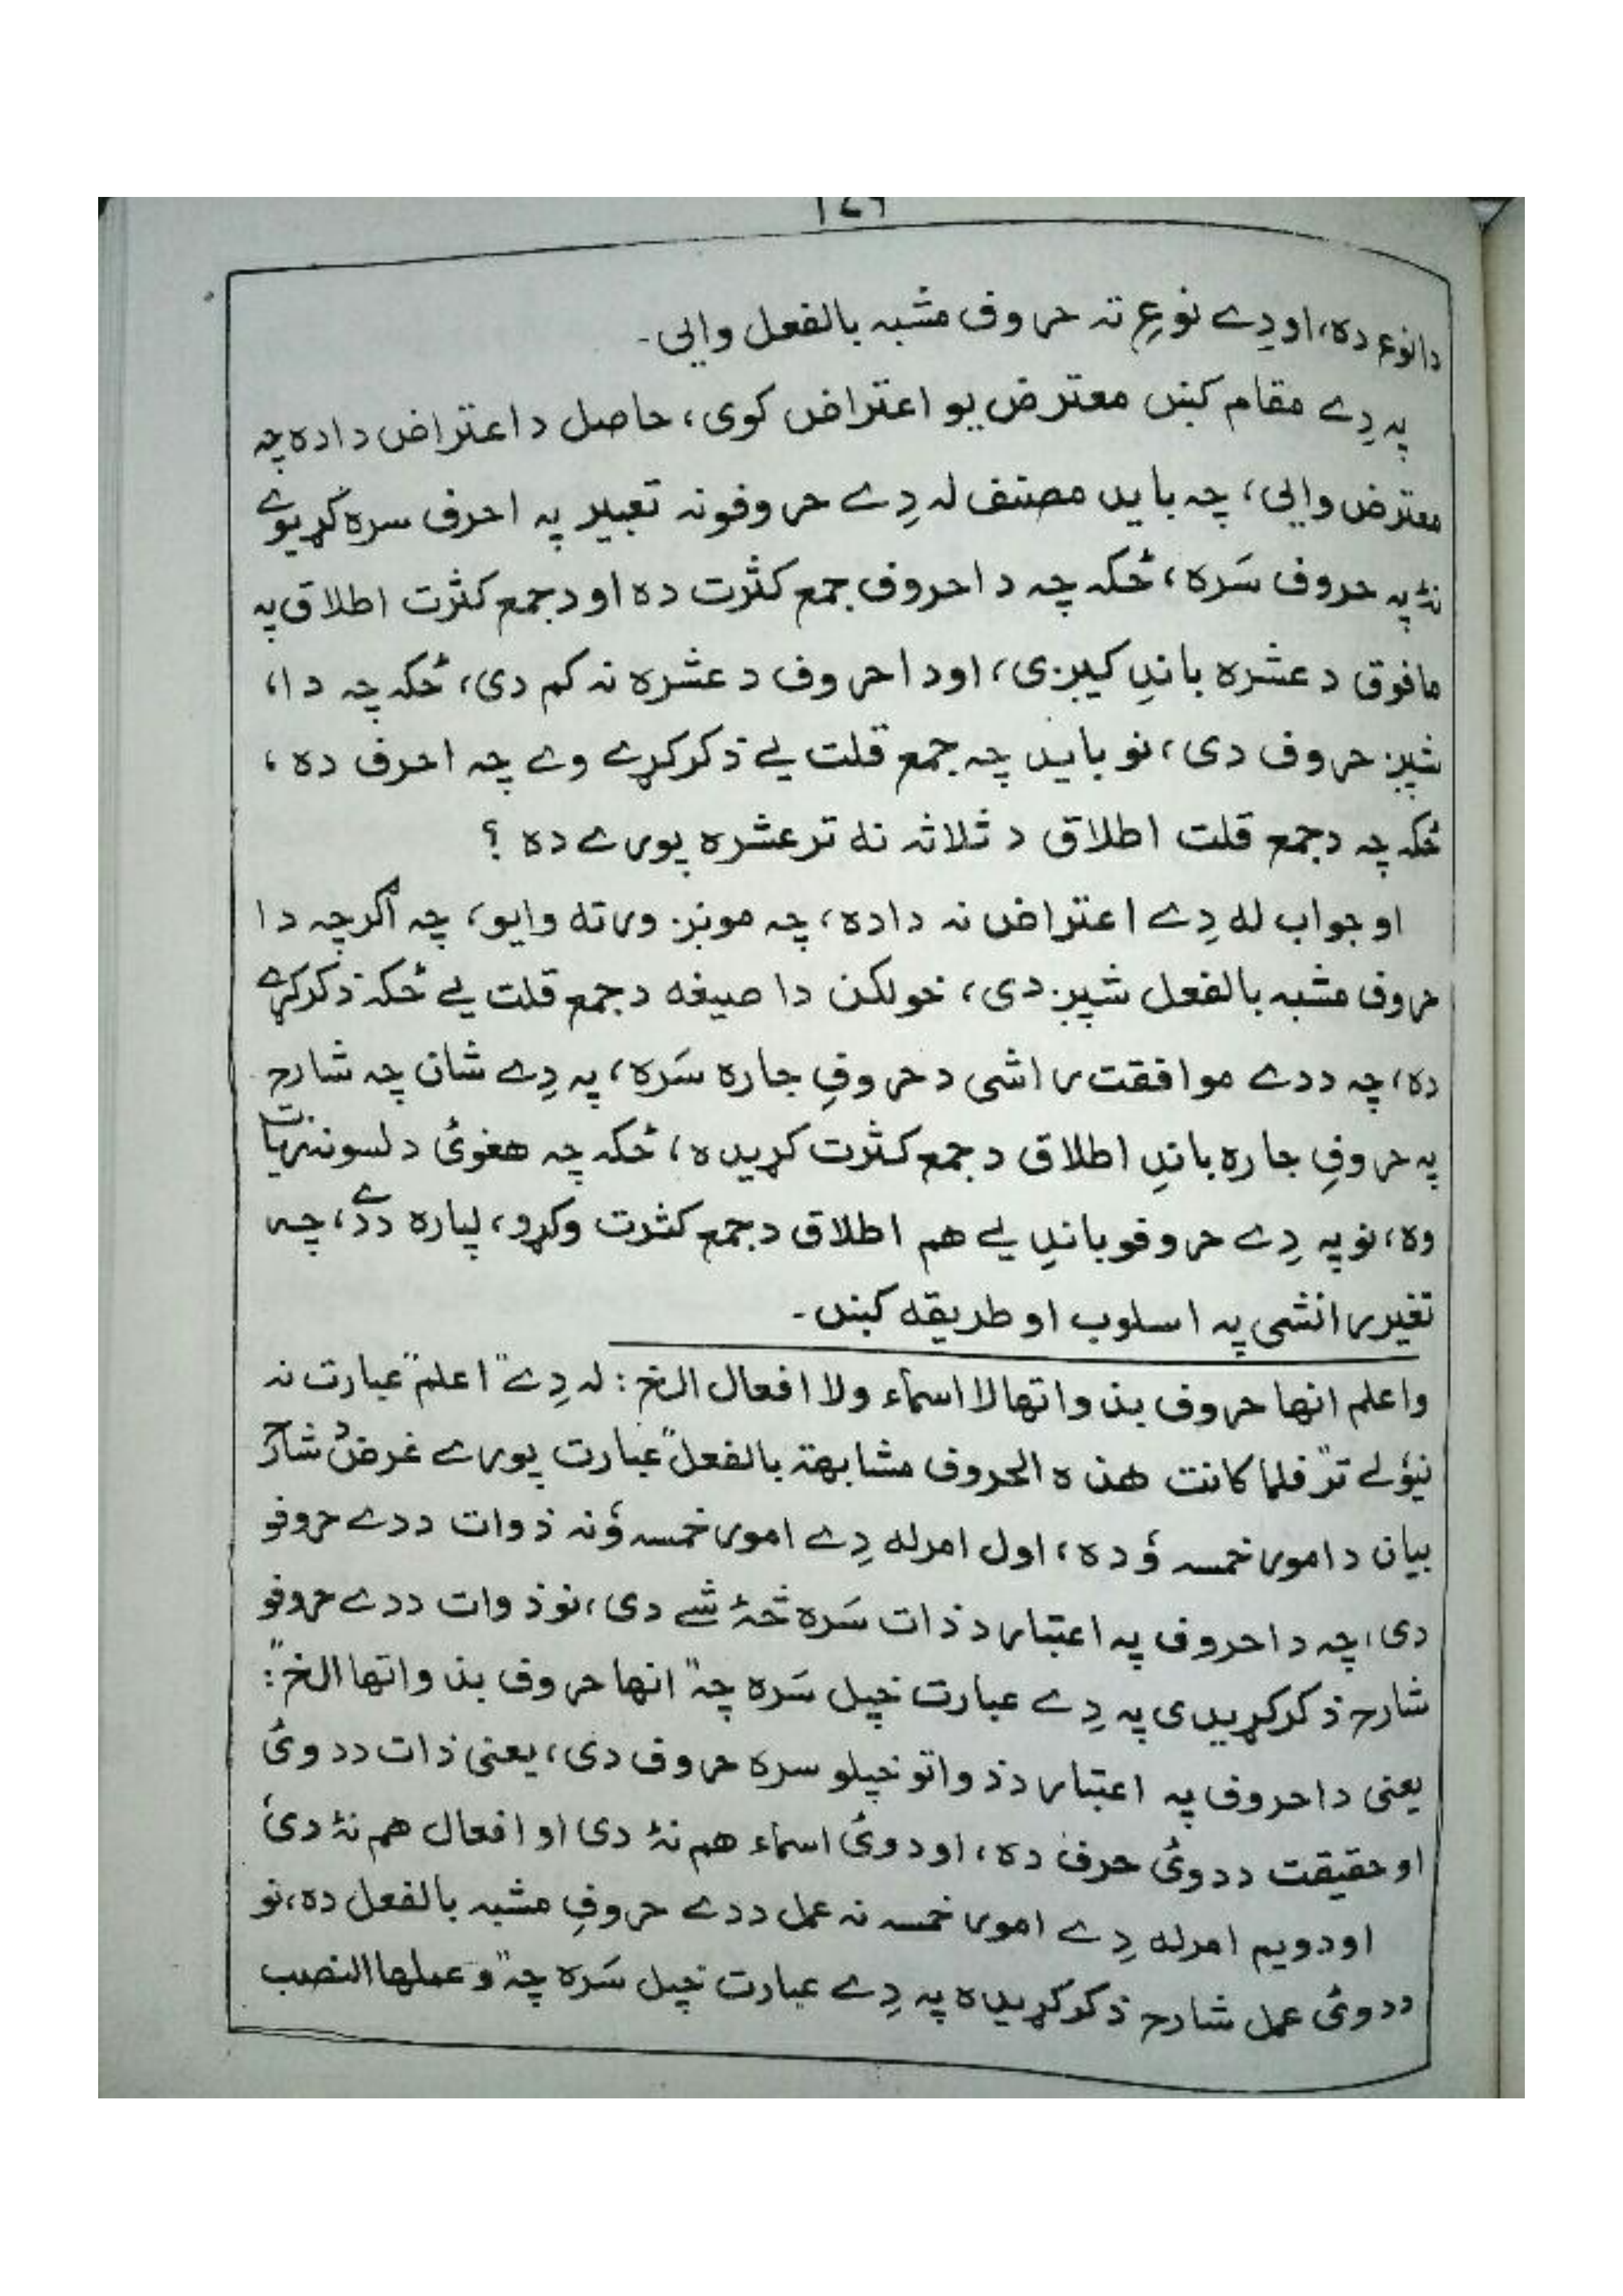 دا نوع ده، او دِے نوعِ ته حروف مشبه بالفعل وایی۔
په دِے مقام کښ معترض یو اعتراض کوی، حاصل د اعتراض دا ده چه
معترض وایی، چه باید مصنف له دِے حروفونه تعبیر په احرف سره کړیوے
نهٔ په حروف سَره، ځکه چه دا حروف جمع کثرت ده او د جمع کثرت اطلاق په
مافوق د عشره باندِ کیږی، او دا حروف د عشره نه کم دی، ځکه چه دا،
شپږ حروف دی، نو باید چه جمع قلت یے ذکر کړے وے چه احرف ده،
ځکه چه د جمع قلت اطلاق د ثلاثه نه تر عشره پورے ده ؟
او جواب له دِے اعتراض نه داده، چه مونږ ورته وایو، چه اگرچه دا
حروف مشبه بالفعل شپږ دی، خو لکن دا صیغه د جمع قلت یے ځکه ذکر کړے
ده، چه ددے موافقت راشی د حروفِ جاره سَره، په دِے شان چه شارح
په حروفِ جاره باندِ اطلاق د جمع کثرت کړیده، ځکه چه هغوئ د لسونه زیات
وه، نو په دِے حروفو باندِ یے هم اطلاق د جمع کثرت وکړو، لپاره ددے، چه
تغیر رانشی په اسلوب او طریقه کښ۔
واعلم انها حروف بذواتها لا اسمآء ولا افعال الخ : له دِے "اعلم" عبارت نه
نیولے تر "فلما کانت هذه الحروف مشابهة بالفعل" عبارت پورے غرض د شارح
بیان د امور خمسه ؤ ده، اول امر له دِے امور خمسه ؤنه ذوات ددے حروفو
دی، چه دا حروف په اعتبار د ذات سَره څهٔ شے دی، نو ذوات ددے حروفو
شارح ذکر کړیدی په دِے عبارت خپل سَره چه "انها حروف بذواتها الخ":
یعنی دا حروف په اعتبار د ذواتو خپلو سره حروف دی، یعنی ذات ددوئ
او حقیقت ددوئ حرف ده، او دوئ اسماء هم نهٔ دی او افعال هم نهٔ دی
او دویم امر له دِے امور خمسه نه عمل ددے حروفِ مشبه بالفعل ده، نو
ددوئ عمل شارح ذکر کړیده په دِے عبارت خپل سَره چه "و عملها النصب